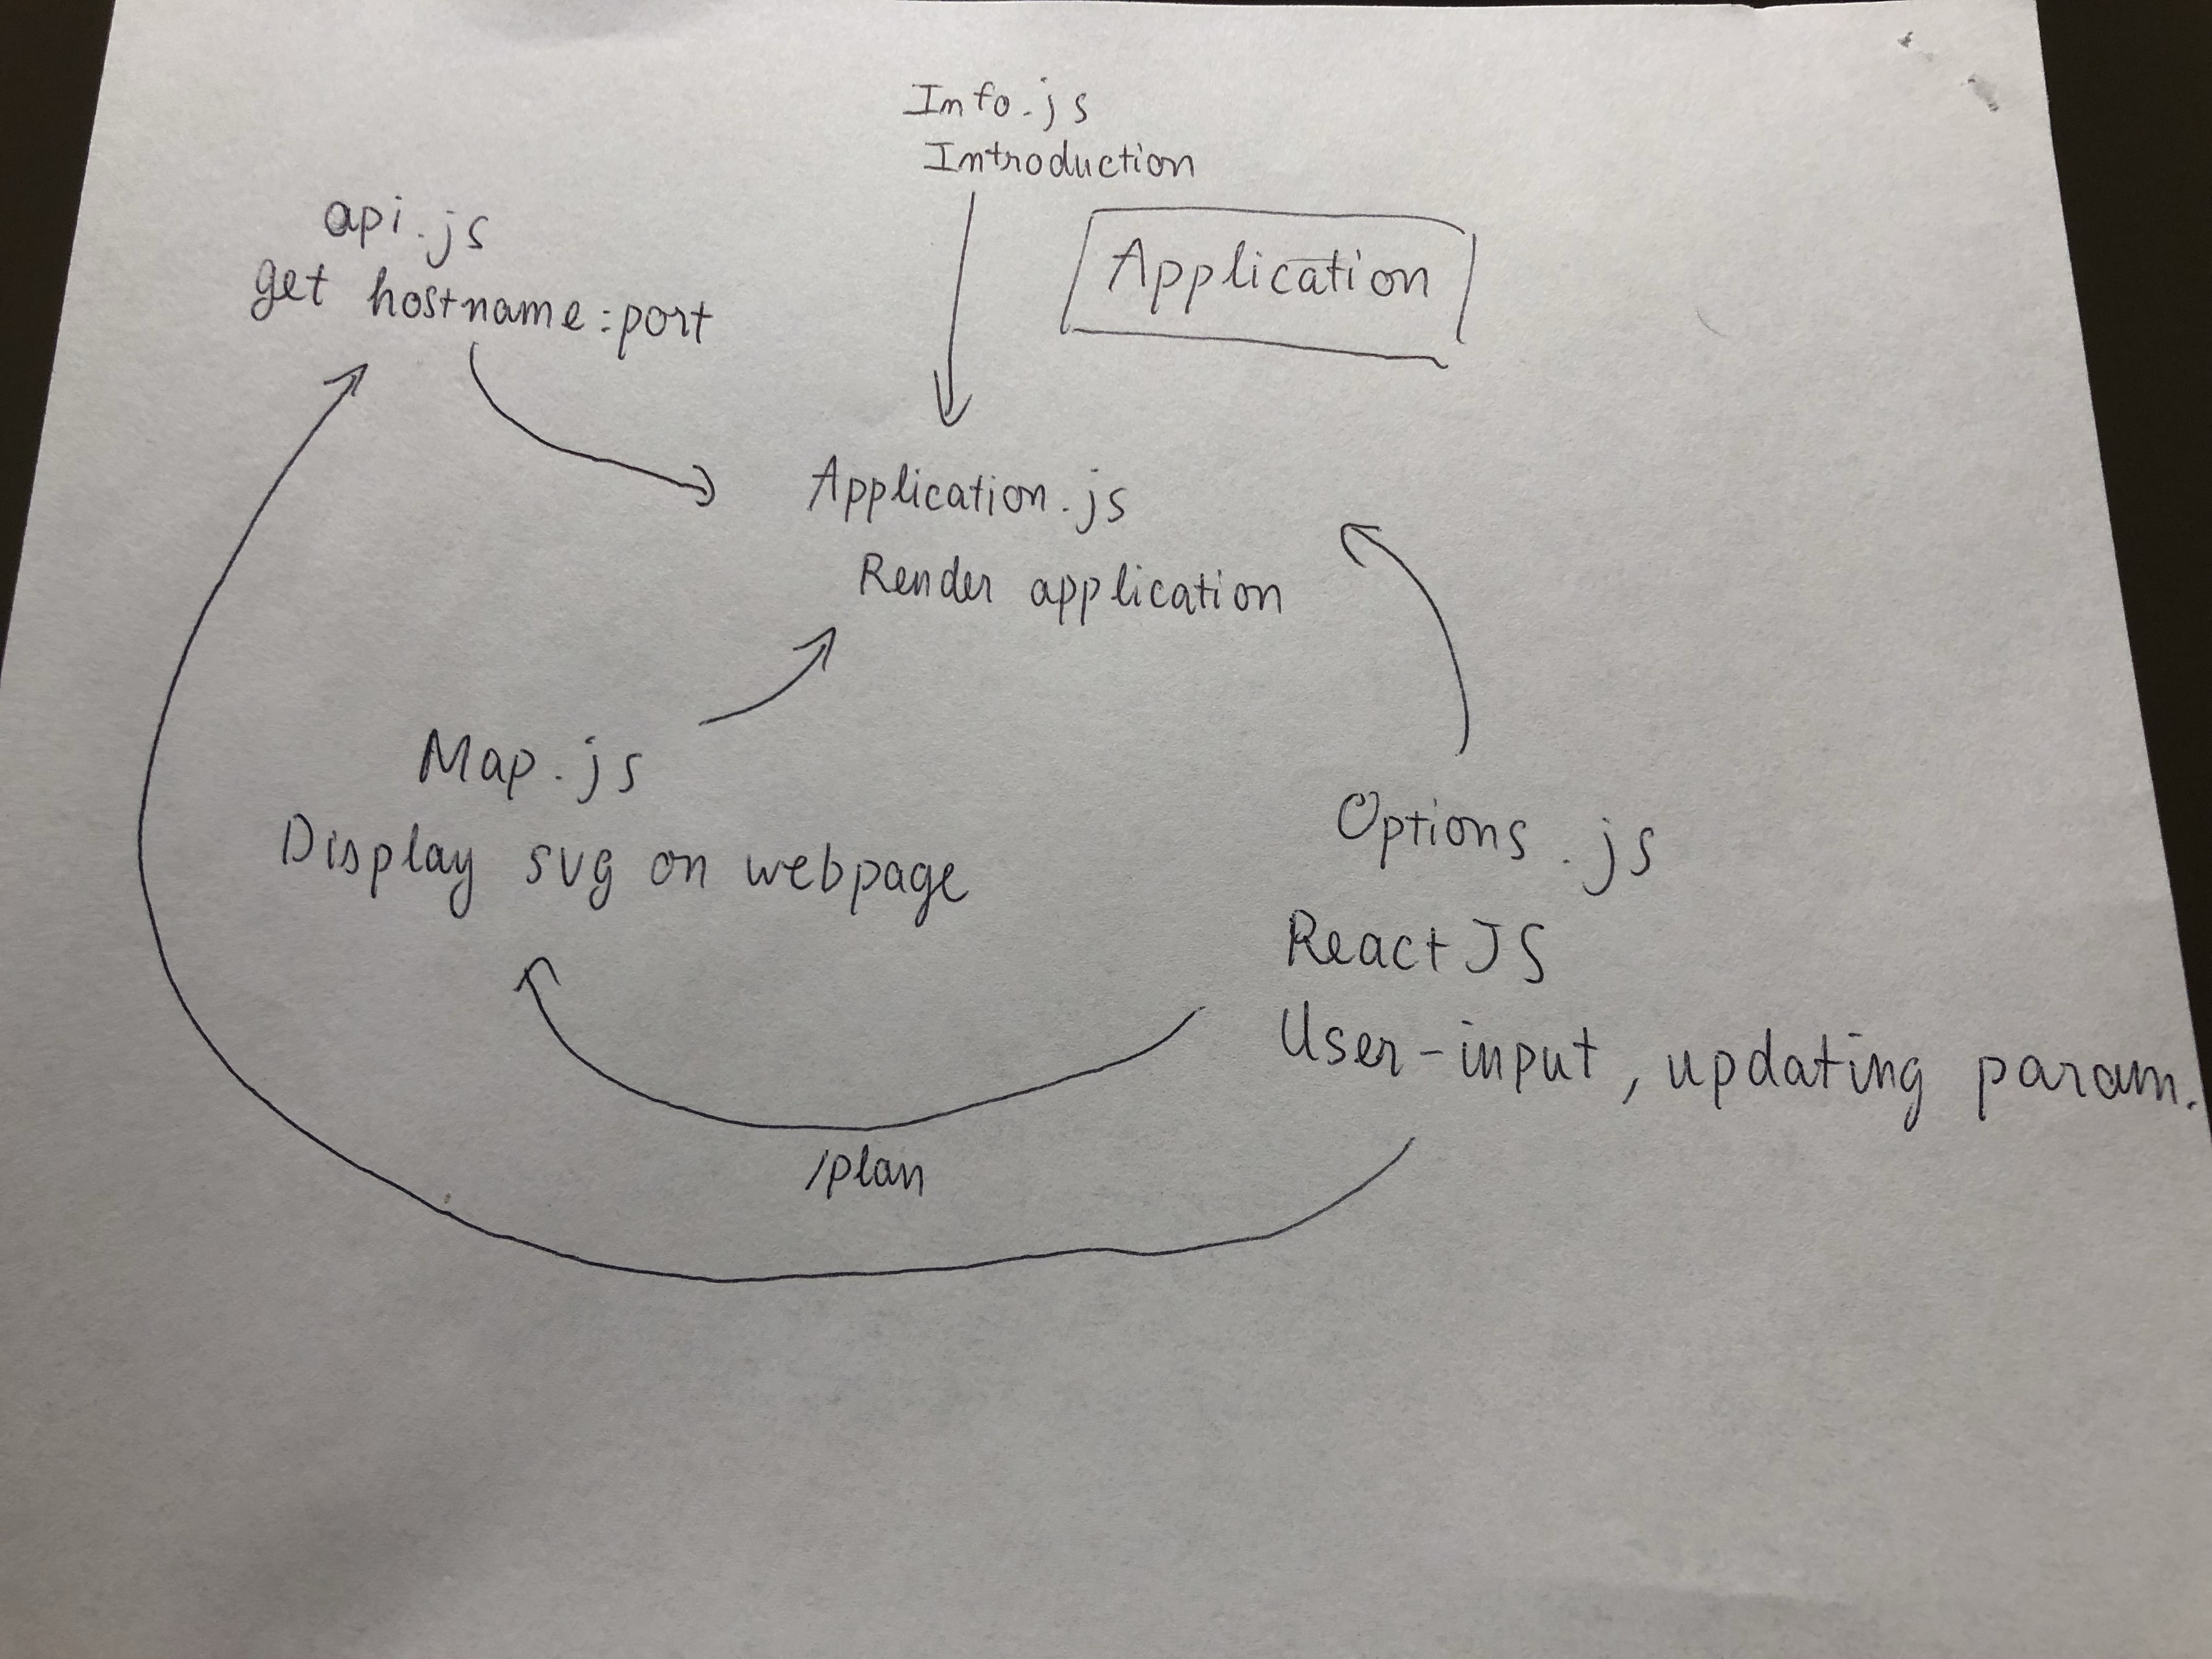 Info.js
Introduction
api.js
get hostname:port
Application
Application.js
Render application
Map.js
Display svg on webpage
Options.js
ReactJS
User-input, updating param.
/plan